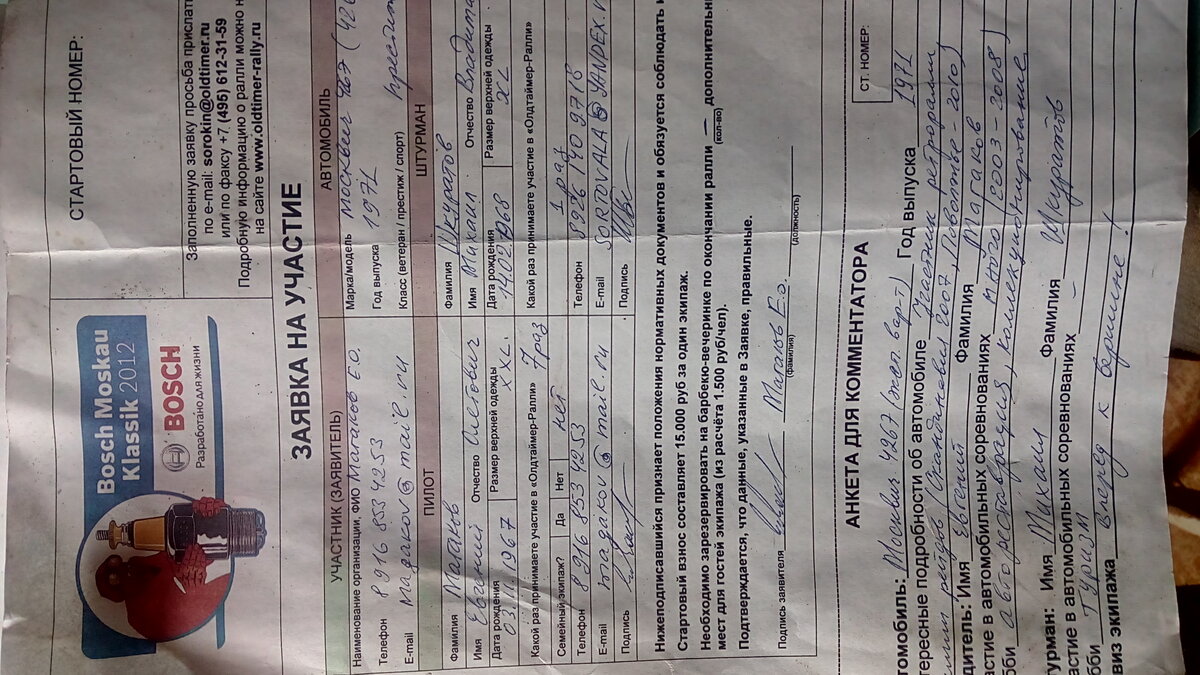 Bosch Moskau
Klassik 2012
BOSCH
Разработано для жизни
СТАРТОВЫЙ НОМЕР:
Заполненную заявку просьба прислать
по e-mail: sorokin@oldtimer.ru
или по факсу +7 (495) 612-31-59
Подробную информацию о ралли можно н
на сайте www.oldtimer-rally.ru
ЗАЯВКА НА УЧАСТИЕ
УЧАСТНИК (ЗАЯВИТЕЛЬ)
Наименование организации, ФИО Магаков Е.О.
Телефон 8 916 853 42 53
E-mail magakov@mail.ru
АВТОМОБИЛЬ
Марка/модель Москвич 4267 (426
Год выпуска 1971
Класс (ветеран / престиж / спорт) престиж
ПИЛОТ
Фамилия Магаков
Имя Евгений Отчество Олегович
Дата рождения 03.11.1967 Размер верхней одежды XXL.
Какой раз принимаете участие в «Олдтаймер-Ралли» 7 раз
Семейный экипаж? Да Нет нет
Телефон 8 916 853 42 53
E-mail magakov@mail.ru
Подпись
ШТУРМАН
Фамилия Шкуратов
Имя Михаил Отчество Владим
Дата рождения 14.02.1968 Размер верхней одежды XL
Какой раз принимаете участие в «Олдтаймер-Ралли»
1 раз
Телефон 8926 140 97 16
E-mail SORTOVALA@YANDEX.r
Подпись
Нижеподписавшийся признает положения нормативных документов и обязуется соблюдать и
Стартовый взнос составляет 15.000 руб за один экипаж.
Необходимо зарезервировать на барбекю-вечеринке по окончании ралли — дополнительн
(кол-во)
мест для гостей экипажа (из расчёта 1.500 руб/чел).
Подтверждается, что данные, указанные в Заявке, правильные.
Подпись заявителя Магаков Е.О.
(фамилия) (должность)
АНКЕТА ДЛЯ КОММЕНТАТОРА
СТ. НОМЕР:
томобиль: Москвич 4267 (эксп. вар-т) Год выпуска 1971
тересные подробности об автомобиле Участник ретроралли,
ретро (Скандинавия 2007, Поволжье-2010)
дитель: Имя Евгений Фамилия Магаков
астие в автомобильных соревнованиях много (2003-2008)
бби автореставрация, коллекционирование
турман: Имя Михаил Фамилия Шкуратов
астие в автомобильных соревнованиях —
бби Туризм
виз экипажа вперед к вершине!